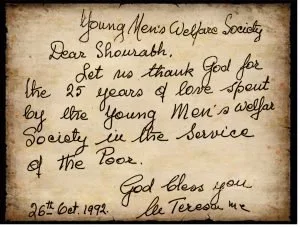 Young Men's Welfare Society
Dear Shourabh,
Let us thank God for
the 25 years of love spent
by the Young Men's Welfar
Society in the Service
of the Poor.
God bless you
26th Oct. 1992. M Teresa mc